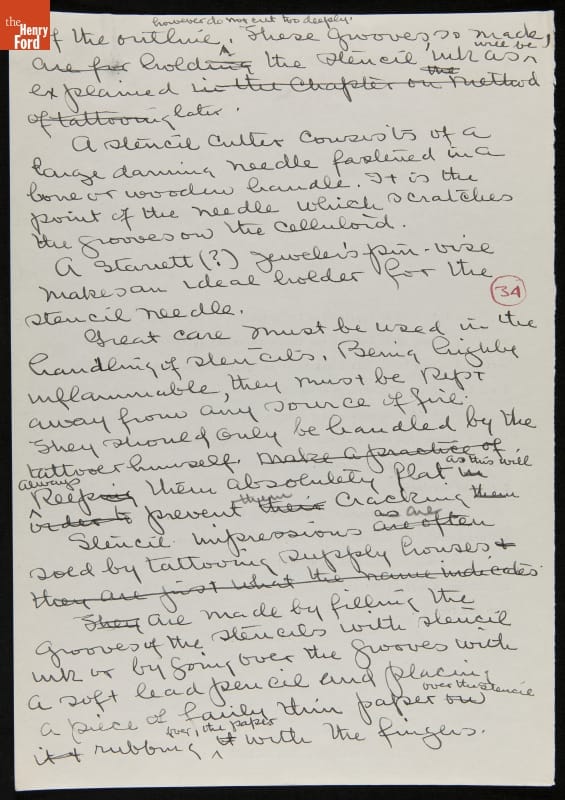 the
Henry
Ford
however do not cut too deeply.
of the outline. ^ These grooves so made,
are for holding the stencil ink as will be
explained in the Chapter on the method
of tattooing later.
A stencil cutter consists of a
large darning needle fastened in a
bone or wooden handle. It is the
point of the needle which scratches
the grooves on the celluloid.
A Starrett (?) Jeweler's pin-vise
makes an ideal holder for the
34
stencil needle.
Great care must be used in the
handling of stencils. Being highly
inflammable, they must be kept
away from any source of fire.
They should only be handled by the
tattooer himself. Make a practice of
always Keeping them absolutely flat in as this will
^ order to prevent their them cracking them
Stencil impressions are often as are
sold by tattooing supply houses +
they are just what the name indicates.
They are made by filling the
grooves of the stencils with stencil
ink or by going over the grooves with
a soft lead pencil and placing
a piece of fairly thin paper on over the stencil
it + rubbing over, the paper ^ it with the fingers.